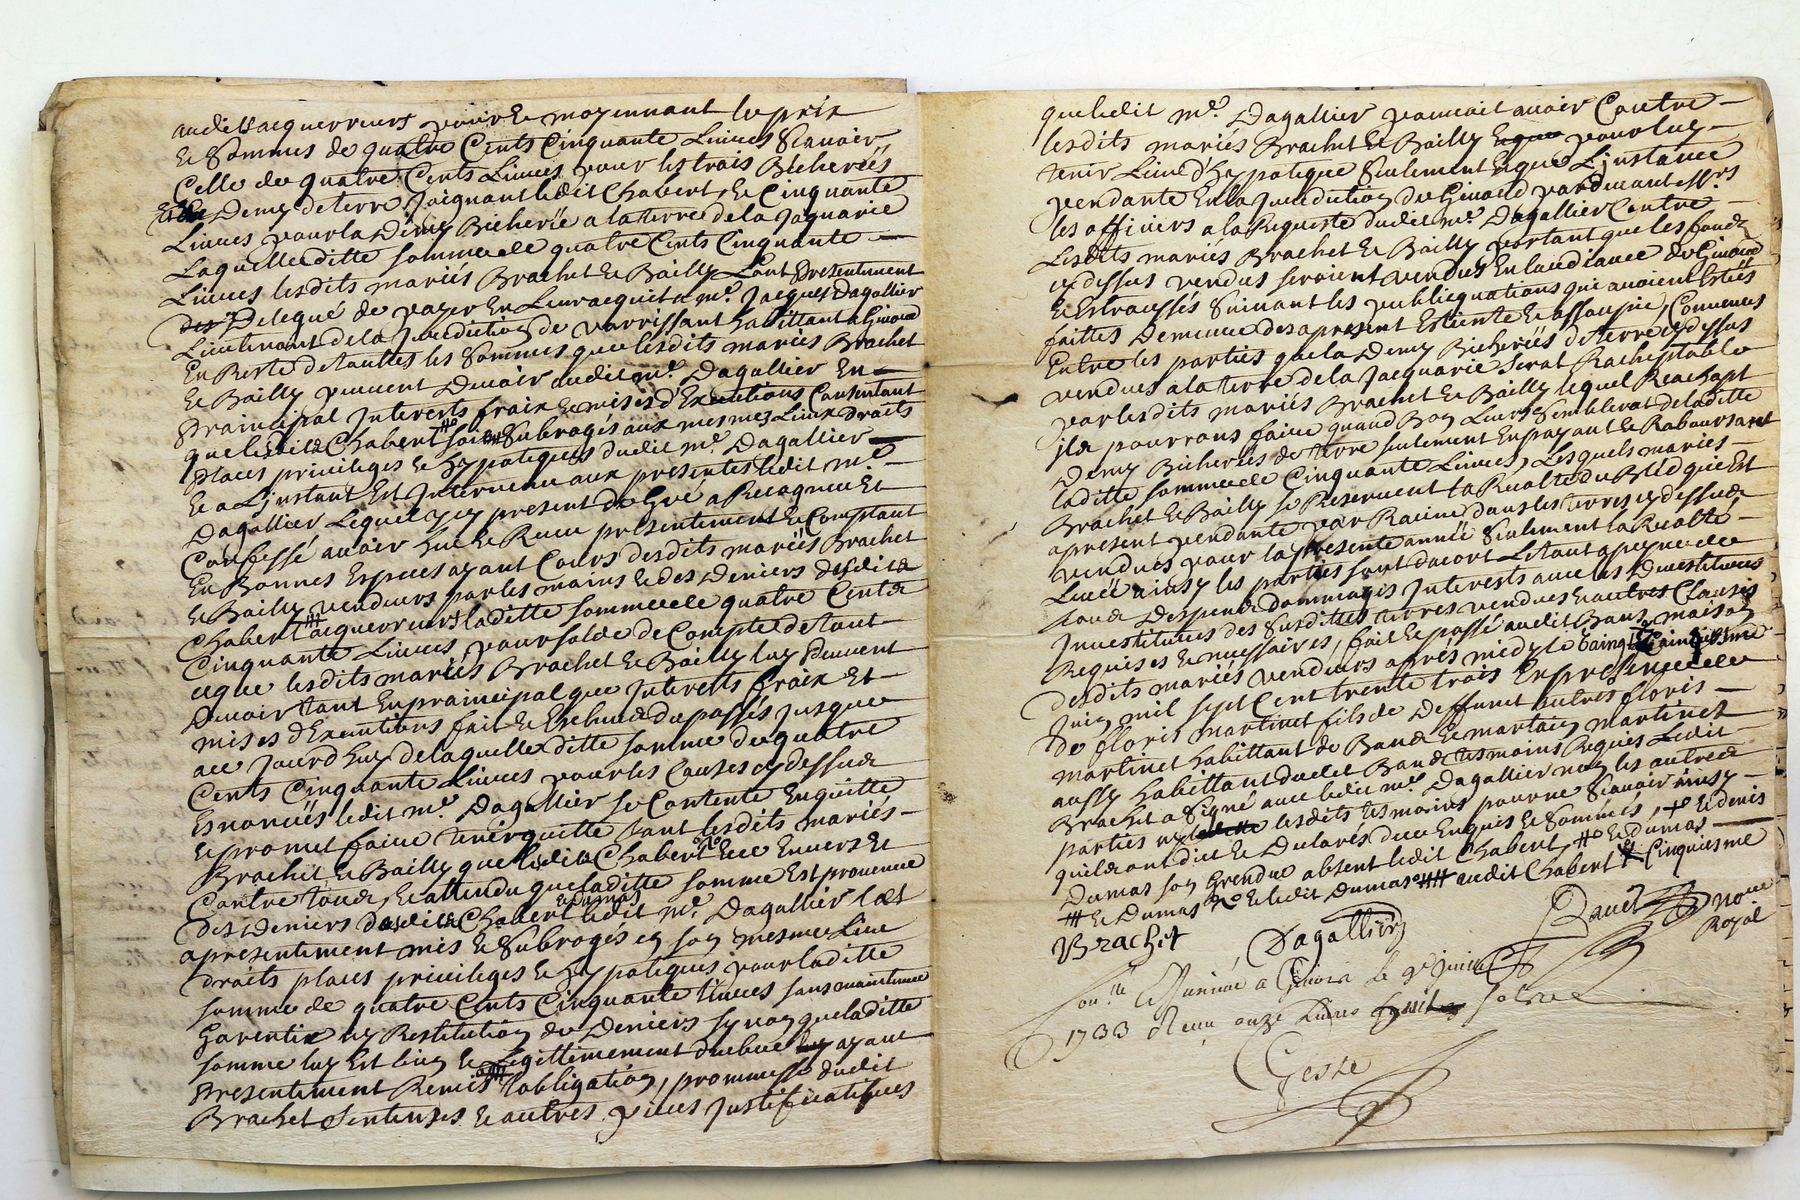 audits acquerreurs pour et moyennant le prix
et sommes de quatre Cents Cinquante Livres scavoir
Celle de quatre Cents Livres pour les trois Bicherées
Demy de terre joignant ledit Chabert, et Cinquante
Livres pour la Demy Bicherée a la terre de la Jaquarie
Laquelle ditte somme de quatre Cents Cinquante
Livres lesdits mariés Brachet et Bailly L'ont presentement
Delegué de payer En Leur acquit a me. Jacques Dagallier
Lieutenant de la Juridiction de Varrissant habittant a
En Reste de touttes les sommes que lesdits mariés Brachet
et Bailly peuvent Devoir audit me. Dagallier En
Prainsipal Interests fraix et mises d'Exeutions Consentant
que lesdits Chabert soit subrogés aux mesmes Lieux Droits
places privileges et hypoteques dudit me. Dagallier
Et a L'instant Est Intervenu aux presentes ledit me.
Dagallier Lequel y cy present de Gré a Recogneu Et
Confessé avoir heu et Receu presentement et Comptant
En Bonnes Especes ayant Cours desdits mariés Brachet
et Bailly vendeurs par les mains et des Deniers desdits
Chabert acquerreurs laditte somme de quatre Cents
Cinquante Livres, pour solde de Compte de tout
ce que lesdits mariés Brachet et Bailly luy peuvent
Devoir tant En prainsipal que Interests fraix Et
mises d'Exeutions fait et Escheuds du passés jusque
au jourd'huy de laquelle ditte somme de quatre
Cents Cinquante Livres pour les Causes cy dessus
Enoncées ledit me. Dagallier se Contente En quitte
et promet faire tenir quitte tant lesdits mariés
Brachet et Bailly que lesdits Chabert Envers Et
Contre tous, et attendu que laditte somme Est provenue
des Deniers desdits Chabert et Dumas ledit me. Dagallier les
a presentement mis et subrogés en son mesme Lieu
droits places privileges et hypoteques pour laditte
somme de quatre Cents Cinquante Livres sans maintenue
Garentie ny Restitution de Deniers sy non que laditte
somme luy Est bien et Legittimement deheue ayant
presentement Remis l'obligation, prommesse dudit
Brachet sentences et autres pieces justificatifves
que ledit me. Dagallier pouvait avoir Contre
lesdits mariés Brachet et Bailly pour luy
tenir Lieu d'hypoteque seulement Et que L'instance
pendante En la Juridiction de par devant
les officiers a la Requeste dudit me. Dagallier Contre
Lesdits mariés Brachet et Bailly portant que les fonds
cy dessus vendus seroient vendus En laudiance de
et Estroussés suivant les publiquations qui avoient Estéés
faittes Demeure des a present Esteinte et assoupie, Convenues
Entre les parties que la Demy Bicherées de terre cy dessus
vendues a la terre de la Jacquarie serat Racheptable
par lesdits mariés Brachet et Bailly lequel Reachapt
ils pourrons faire quand Bon Leurs semblerat de laditte
Demy Bicherées de terre seulement En payant et Raboursant
laditte somme de Cinquante Livres, Lesquels mariés
Brachet et Bailly se Reservent la Reolte du Bled qui Est
apresent pendante par Racine dans les terres cy dessus
vendues pour la presente année seulement la Reolte
Levée ainsy les parties sont dacort Le tout a peyne de
tous Despends Dommages Interests avec les Devestitures
Investitures des susdittes terres vendues et autres Clauses
Requises et necessaires, fait et passé audit Bans maison
desdits mariés vendeurs après midy le
Juin mil sept Cent trente trois En presence de
de floris martinet fils de Deffunct autres floris
martinet habittant de Bans et martin martinet
aussy habittant dudit Bans tesmoins Requis Ledit
Brachet a signé avec ledit me. Dagallier non les autres
parties ny lesdits tesmoins pour ne scavoir ainsy
quils ont dict et Declarés de ce Enquis et sommés, + et denis
Dumas son Grendre absent ledit Chabert, # et Dumas
# et Dumas et ledit Dumas ## audit Chabert Cinquiesme
Brachet
Dagallier
noe.
Royal
le 9e Juin
1733 Receu onze Livres
Geste